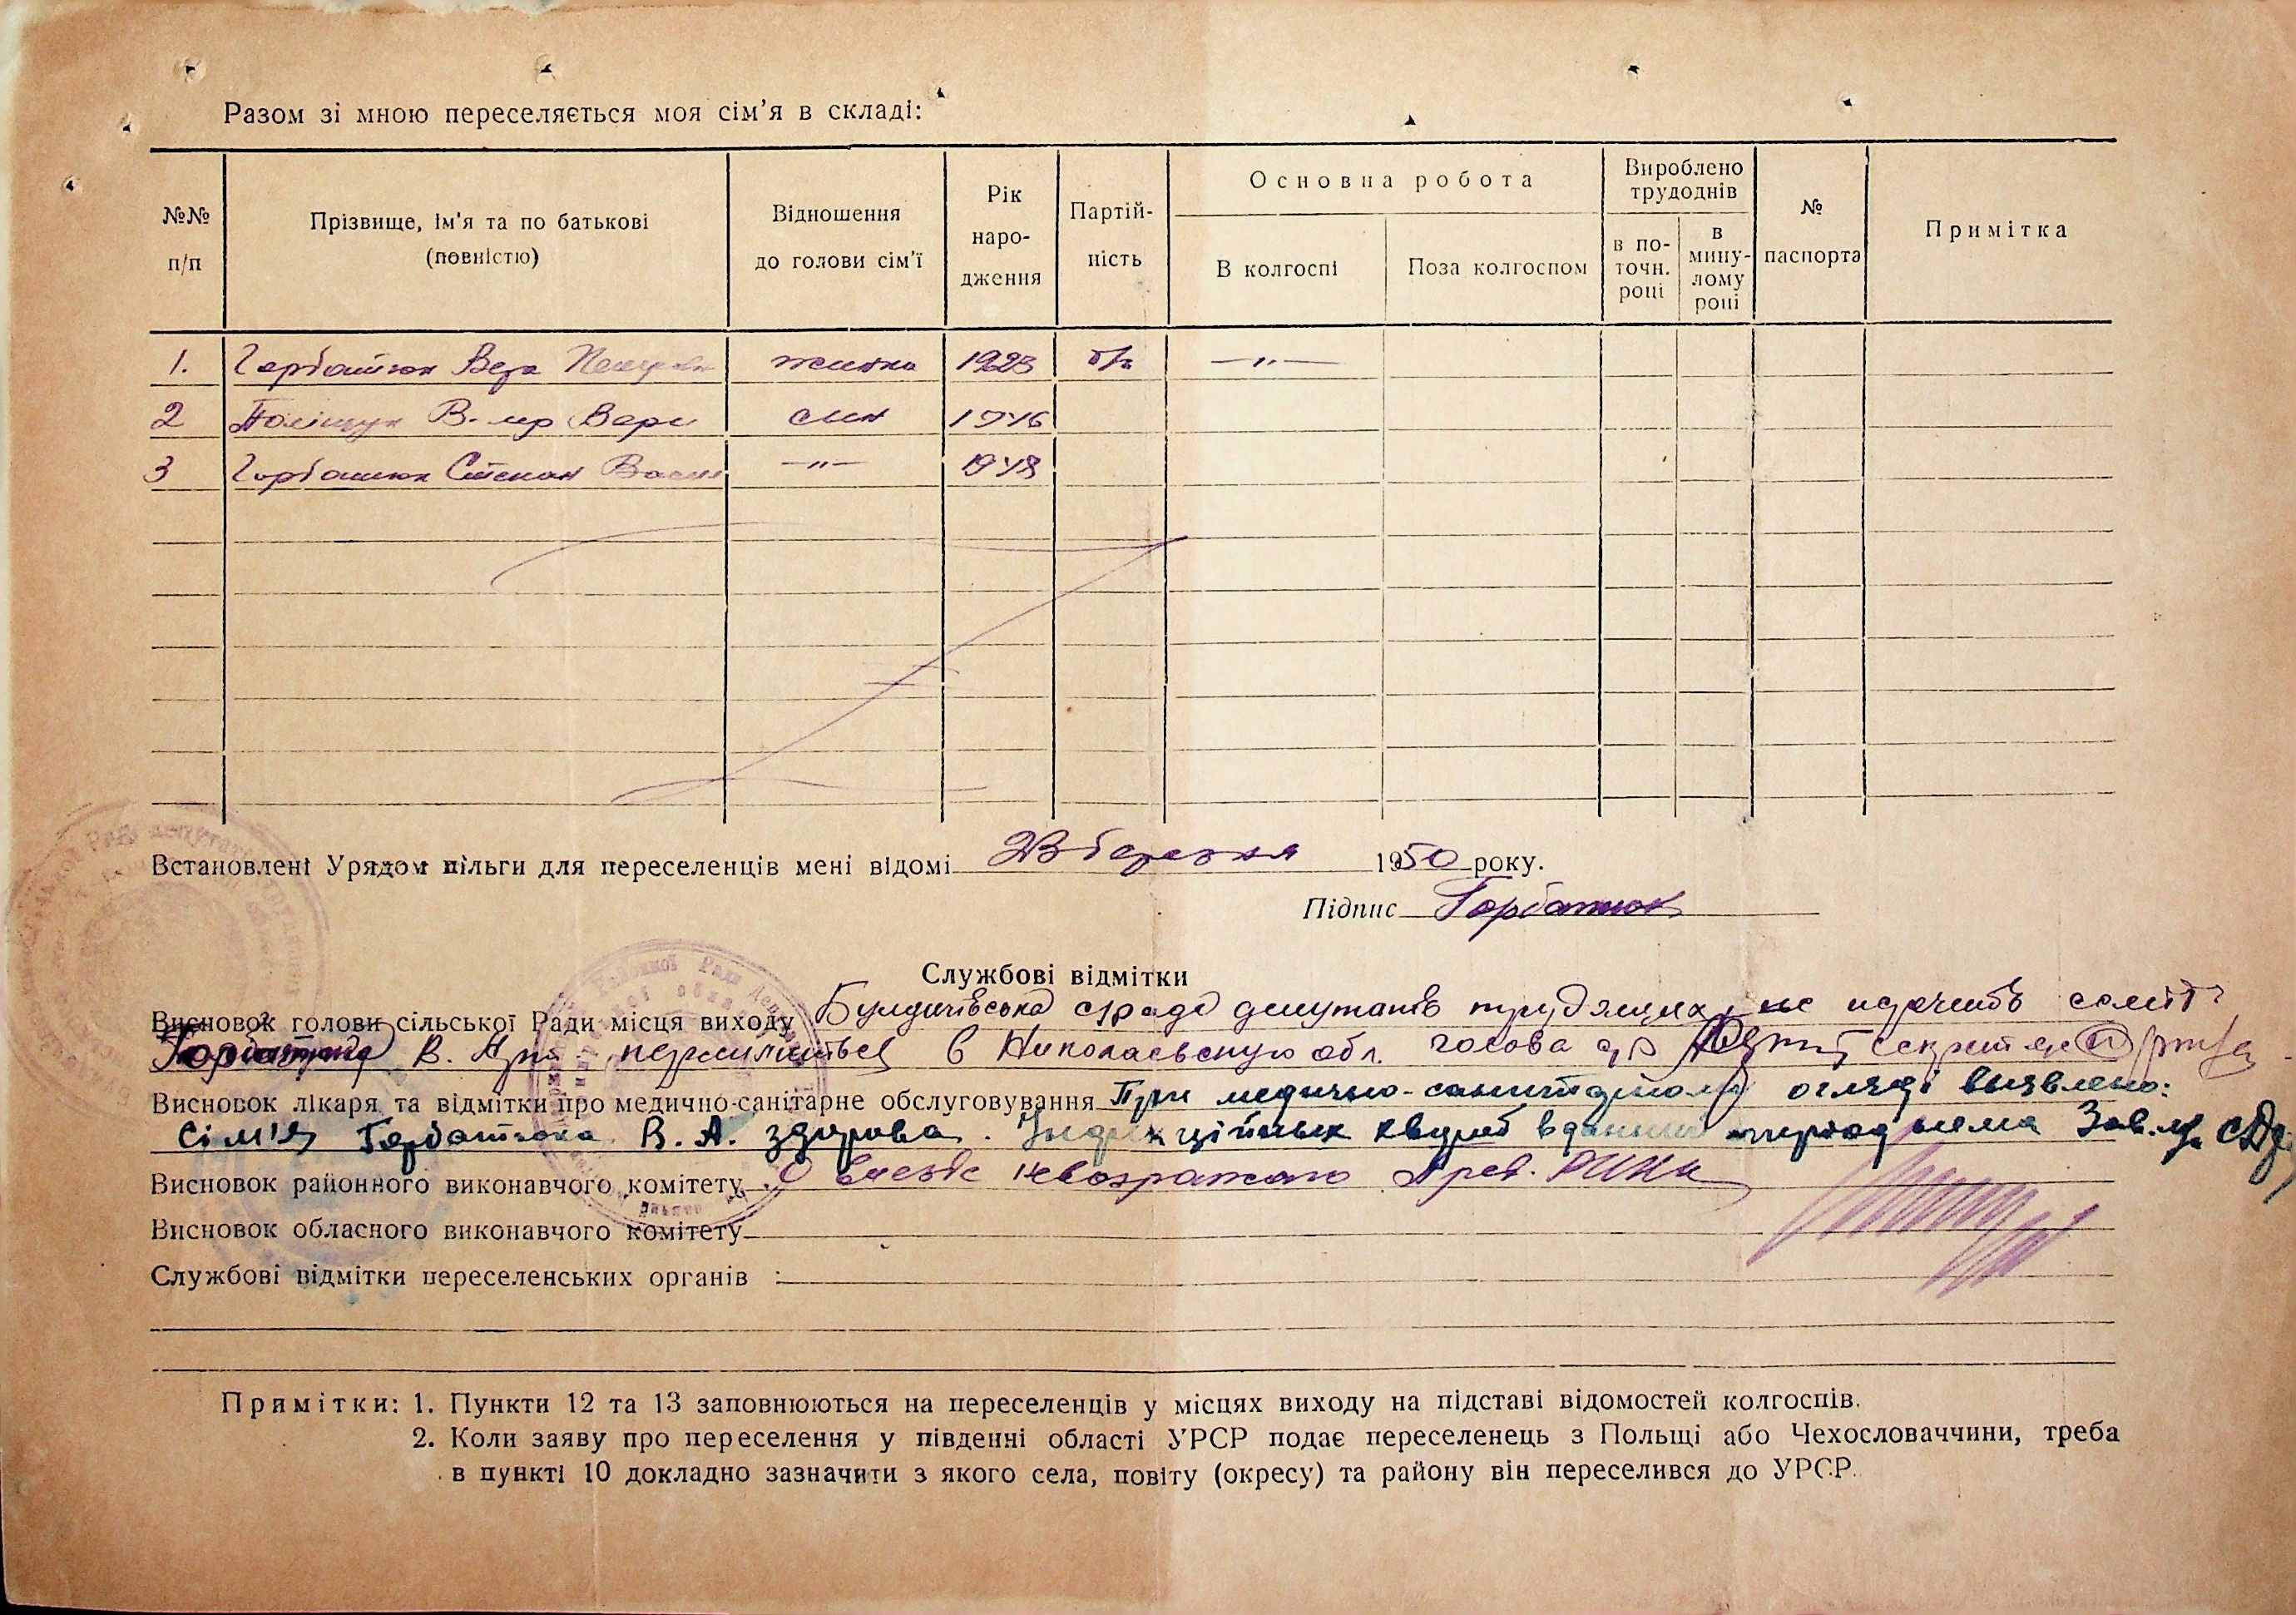 Разом зі мною переселяється моя сім'я в складі:
№№ п/п
Прізвище, ім'я та по батькові (повністю)
Відношення до голови сім'ї
Рік народження
Партійність
Основна робота
В колгоспі
Поза колгоспом
Вироблено трудоднів
в поточн. році
в минулому році
№ паспорта
Примітка
1. Горбатюк Вера жинка 1923 б/п —"—
2 Поліщук син 1946
3 Горбатюк Степан —"— 1948
Встановлені Урядом пільги для переселенців мені відомі 23 березня 1950 року.
Підпис Горбатюк
Службові відмітки
Висновок голови сільської Ради місця виходу депутатів трудящих, не
В. в Николаевскую обл. голова
Висновок лікаря та відмітки про медично-санітарне обслуговування При медично- огляді выявлено:
Сім'я Горбатюка В. А. здорова.
Висновок районного виконавчого комітету
Висновок обласного виконавчого комітету
Службові відмітки переселенських органів :
Примітки: 1. Пункти 12 та 13 заповнюються на переселенців у місцях виходу на підставі відомостей колгоспів.
2. Коли заяву про переселення у південні області УРСР подає переселенець з Польщі або Чехословаччини, треба
в пункті 10 докладно зазначити з якого села, повіту (окресу) та району він переселився до УРСР.